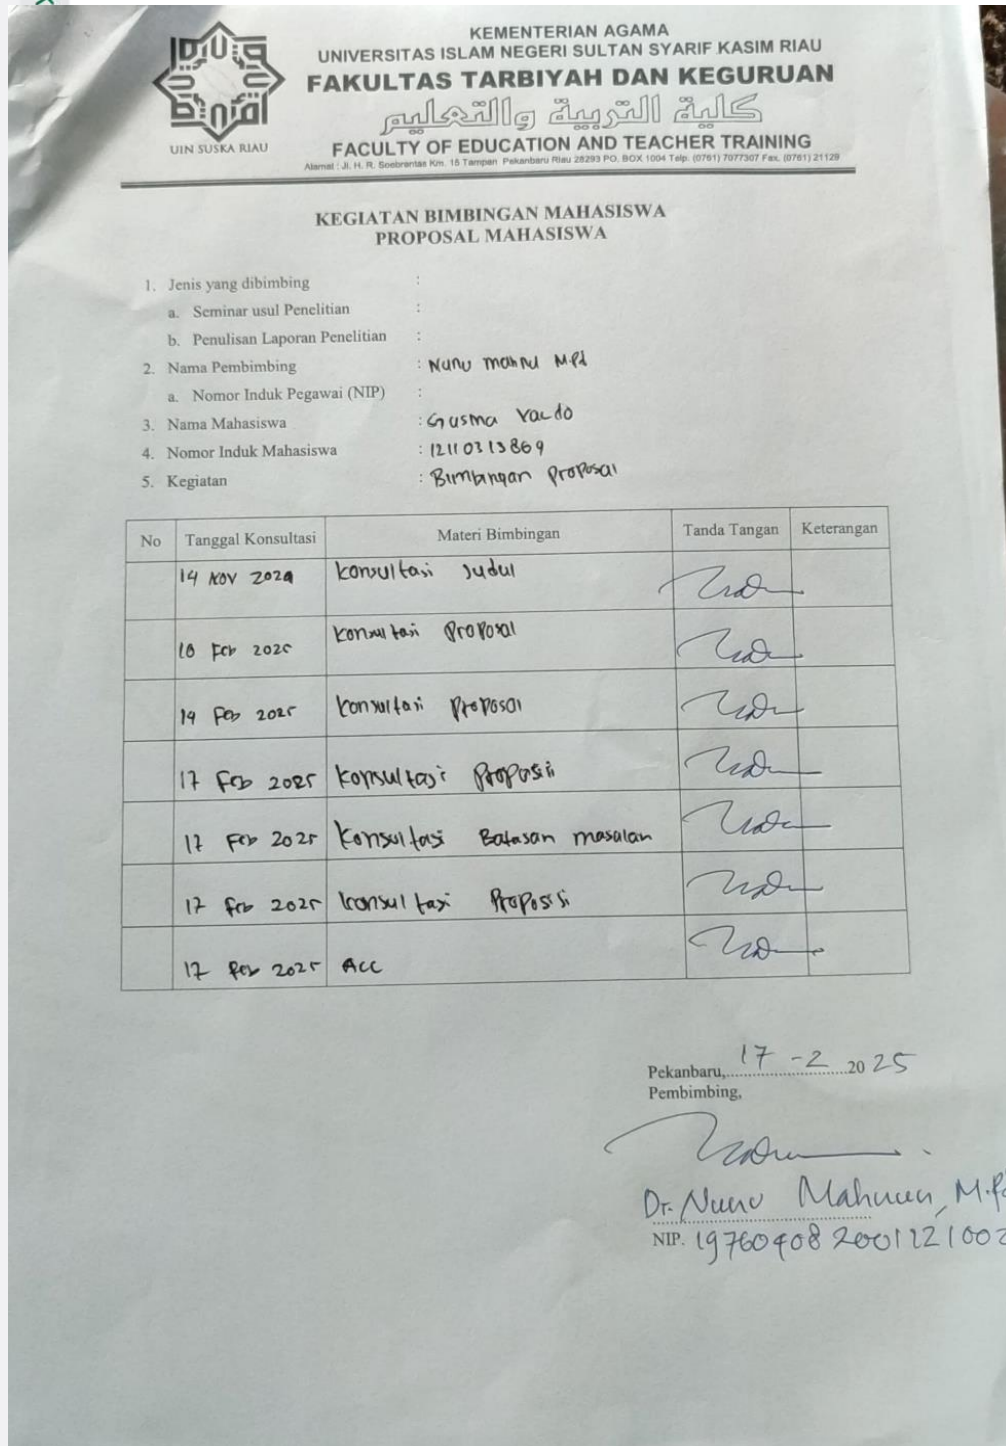 KEMENTERIAN AGAMA
UNIVERSITAS ISLAM NEGERI SULTAN SYARIF KASIM RIAU
FAKULTAS TARBIYAH DAN KEGURUAN
كلية التربية والتعليم
FACULTY OF EDUCATION AND TEACHER TRAINING
Alamat : Jl. H. R. Soebrantas Km. 15 Tampan Pekanbaru Riau 28293 PO. BOX 1004 Telp. (0761) 7077307 Fax. (0761) 21129
UIN SUSKA RIAU
KEGIATAN BIMBINGAN MAHASISWA
PROPOSAL MAHASISWA
1. Jenis yang dibimbing :
a. Seminar usul Penelitian :
b. Penulisan Laporan Penelitian :
2. Nama Pembimbing : Nunu Mahnu M.Pd
a. Nomor Induk Pegawai (NIP) :
3. Nama Mahasiswa : Gusma Valdo
4. Nomor Induk Mahasiswa : 12110313869
5. Kegiatan : Bimbingan Proposal
No Tanggal Konsultasi Materi Bimbingan Tanda Tangan Keterangan
14 Nov 2024 Konsultasi Judul
10 Feb 2025 Konsultasi Proposal
14 Feb 2025 Konsultasi Proposal
17 Feb 2025 Konsultasi
17 Feb 2025 Konsultasi Batasan masalah
17 Feb 2025 Konsultasi
17 Feb 2025 ACC
Pekanbaru, 17 - 2 2025
Pembimbing,
Dr. Nunu Mahnun, M.Pd
NIP. 19760408 200112 1 002